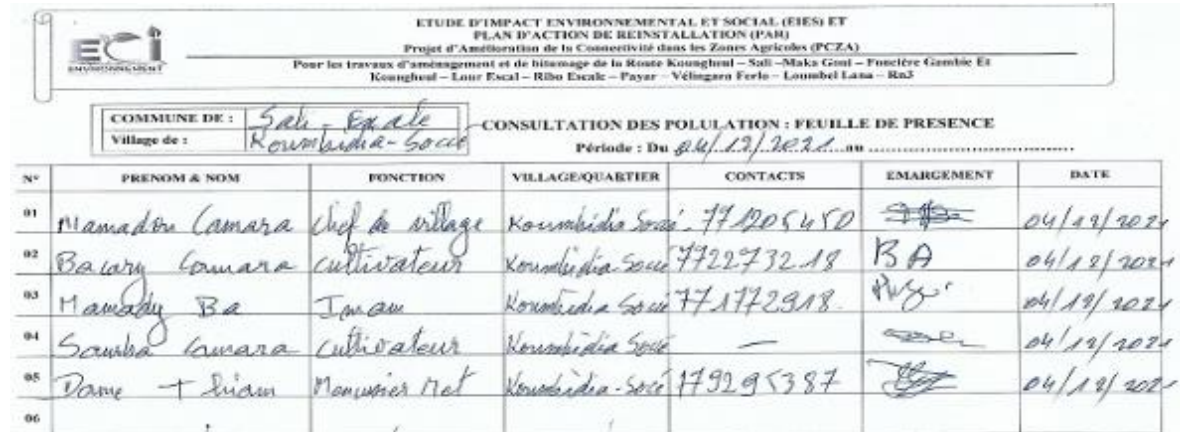 ECI
ENVIRONNEMENT
ETUDE D'IMPACT ENVIRONNEMENTAL ET SOCIAL (EIES) ET
PLAN D'ACTION DE REINSTALLATION (PAR)
Projet d'Amélioration de la Connectivité dans les Zones Agricoles (PCZA)
Pour les travaux d'aménagement et de bitumage de la Route Koungheul – Sali –Maka Goui – Foncière Gambie Et
Koungheul – Lour Escal – Ribo Escale – Payar – Vélingara Ferlo – Loumbel Lana – Rn3
COMMUNE DE : Sali - Escale
Village de : Koumbidia-Socé
CONSULTATION DES POLULATION : FEUILLE DE PRESENCE
Période : Du 04/12/2021 au
N° PRENOM & NOM FONCTION VILLAGE/QUARTIER CONTACTS EMARGEMENT DATE
01 Mamadou Camara chef de village Koumbidia Socé 771205450 04/12/2021
02 Bacary Camara cultivateur Koumbidia Socé 772273218 BA 04/12/2021
03 Mamady Ba Imam Koumbidia Socé 771772918 04/12/2021
04 Samba Camara cultivateur Koumbidia Socé — 04/12/2021
05 Dame Thiam Menuisier Met Koumbidia-Socé 779295387 04/12/2021
06